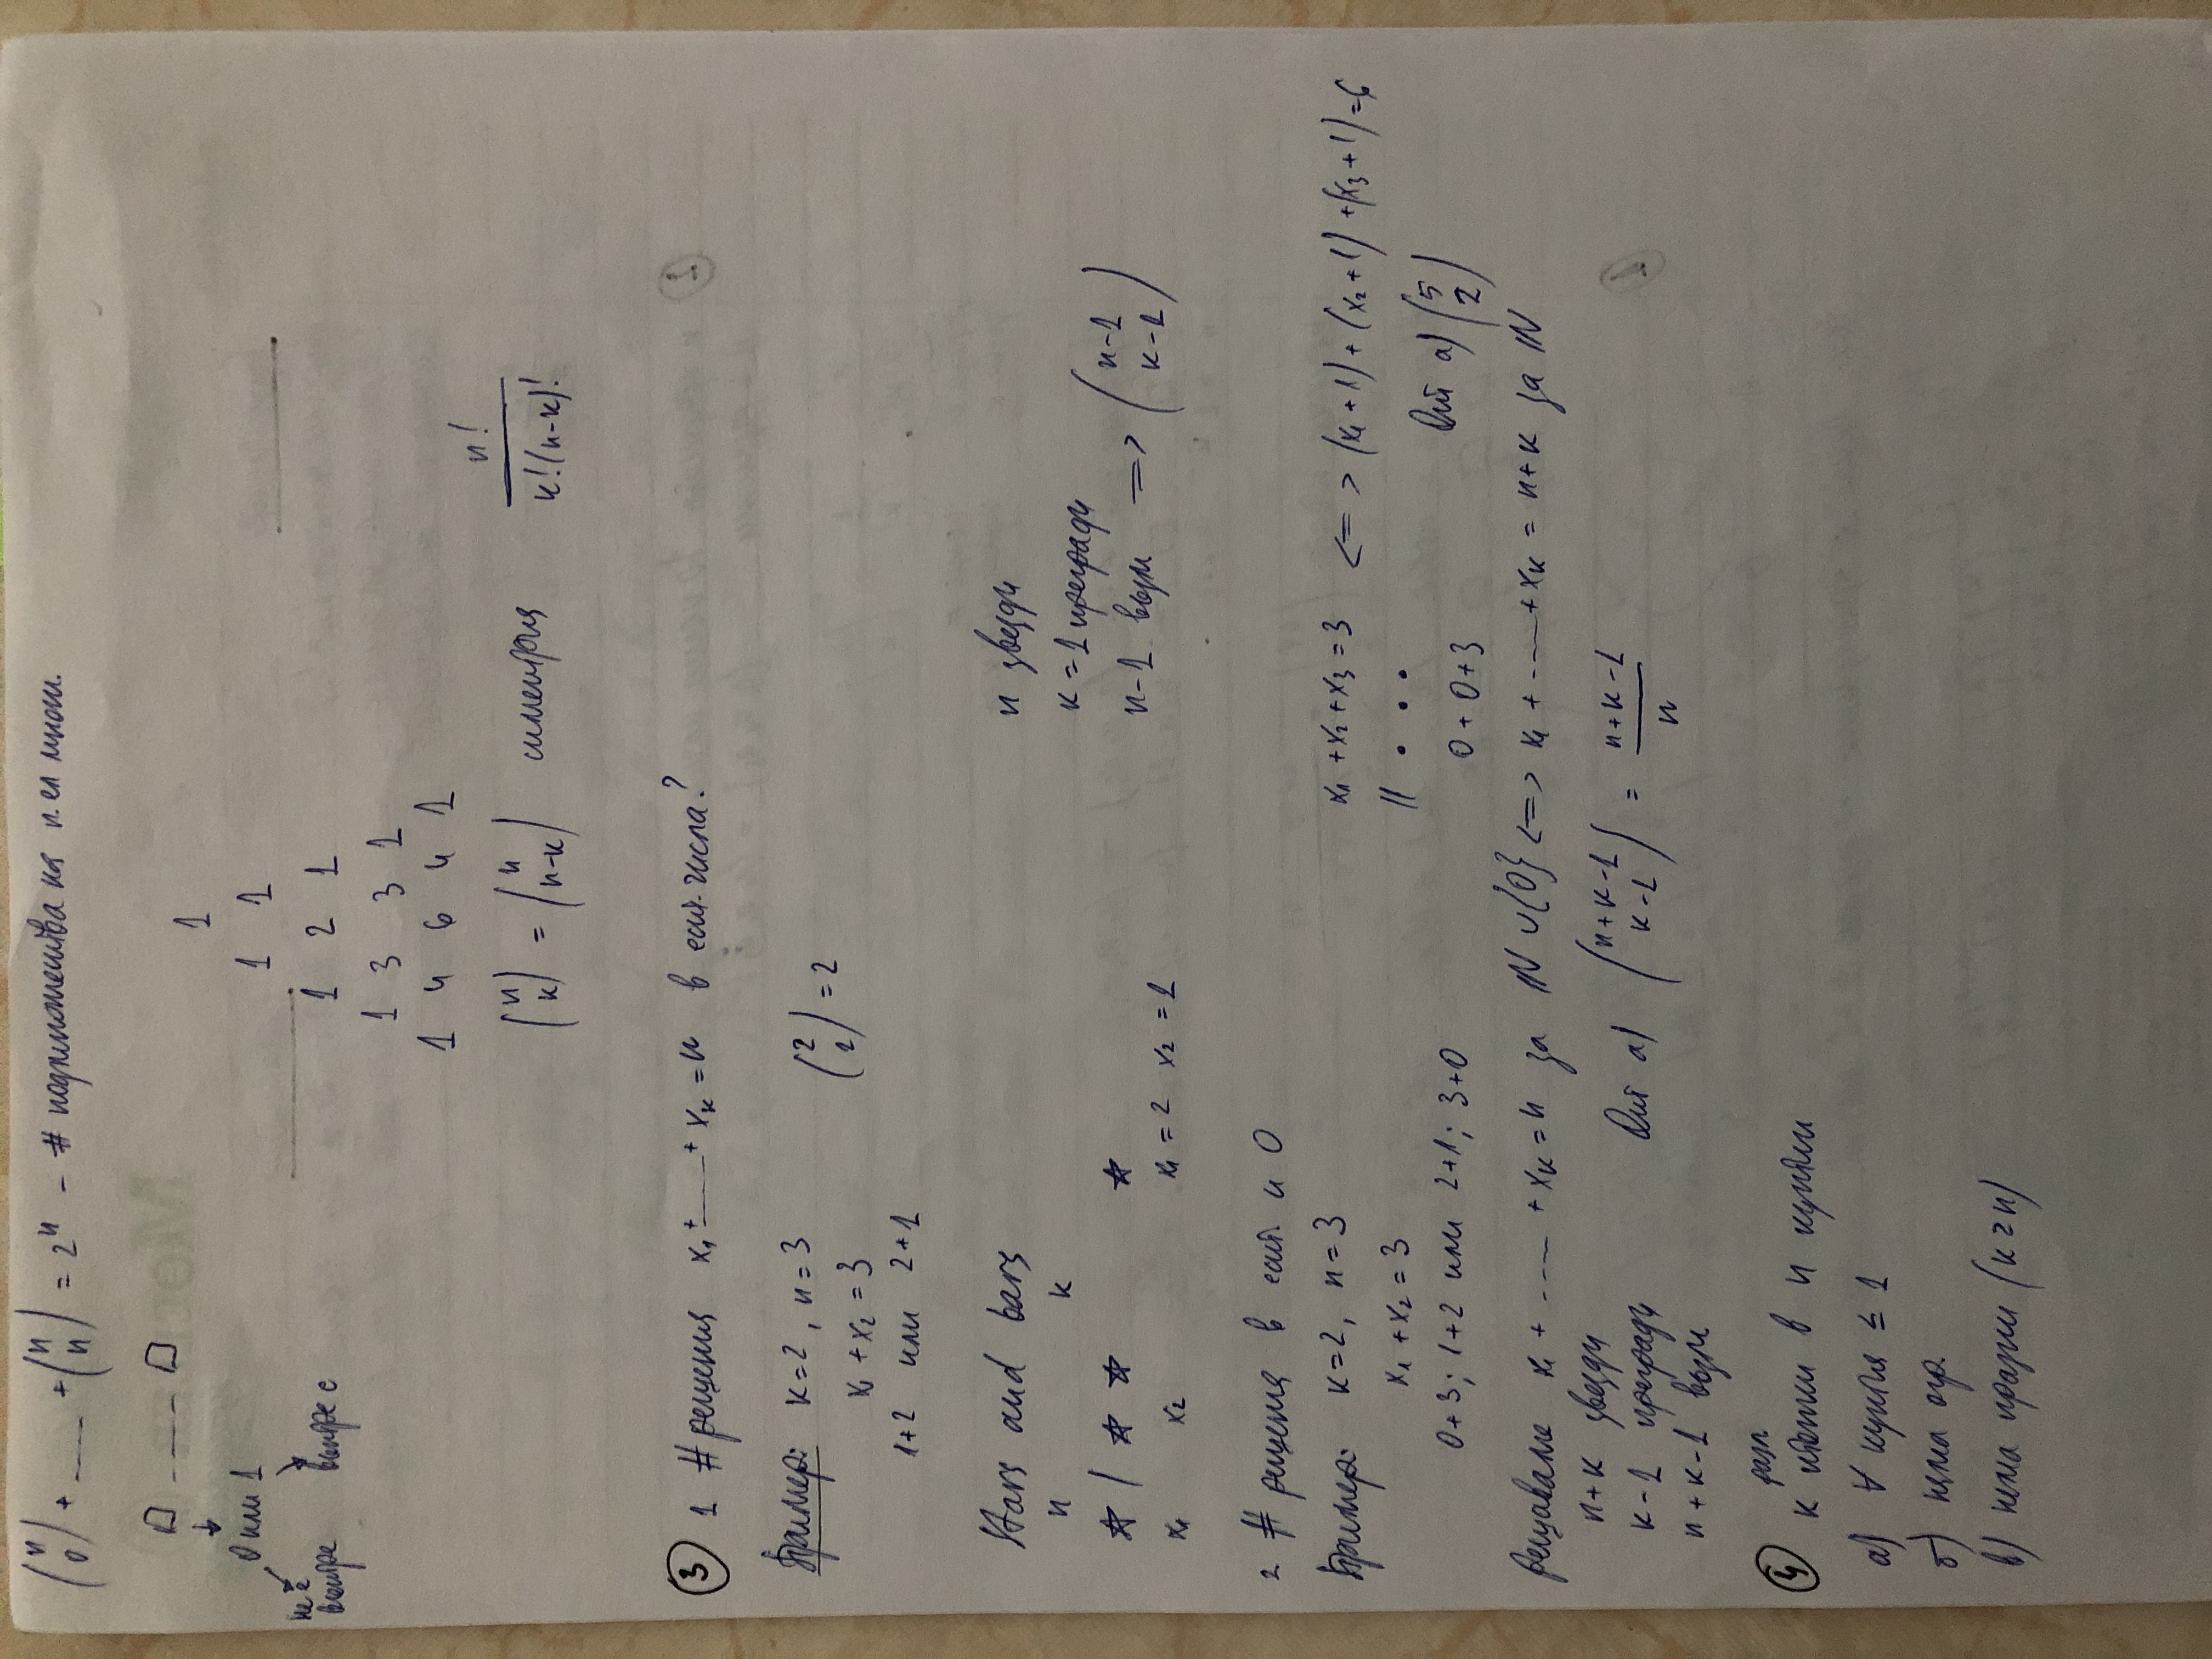 (n 0) + ___ + (n n) = 2ⁿ - # подмножества на n. ел множ.
□ ---- □
↓
0 или 1
не е вътре вътре е
1
1 1
1 2 1
1 3 3 1
1 4 6 4 1
(n k) = (n n-k) симетрия n! / k!(n-k)!
③ 1 # решения x₁ + ___ + xₖ = n в ест. числа?
Пример: k=2, n=3
x₁ + x₂ = 3 (2 1) = 2
1+2 или 2+1
Stars and bars
n k
☆ | ☆ ☆ ☆
x₁ x₂ x₁ = 2 x₂ = 1
n звезди
k-1 прегради
n-1 възм => (n-1 k-1)
2 # решения в ест. и 0
Пример: k=2, n=3
x₁ + x₂ = 3
0+3; 1+2 или 2+1; 3+0
x₁ + x₂ + x₃ = 3 <=> (x₁+1) + (x₂+1) + (x₃+1) = 6
|| • • •
0 + 0+3
От а) (5 2)
Решаваме x₁ + ---- + xₖ = n за ℕ ∪ {0} <=> x₁ + ---- + xₖ = n+k за ℕ
n+k звезди
k-1 прегради
n+k-1 възм
От а) (n+k-1 k-1) = n+k-1 / n
④ k разл топки в n кутии
а) ∀ кутия ≤ 1
б) няма огр.
в) няма празни (k≥n)